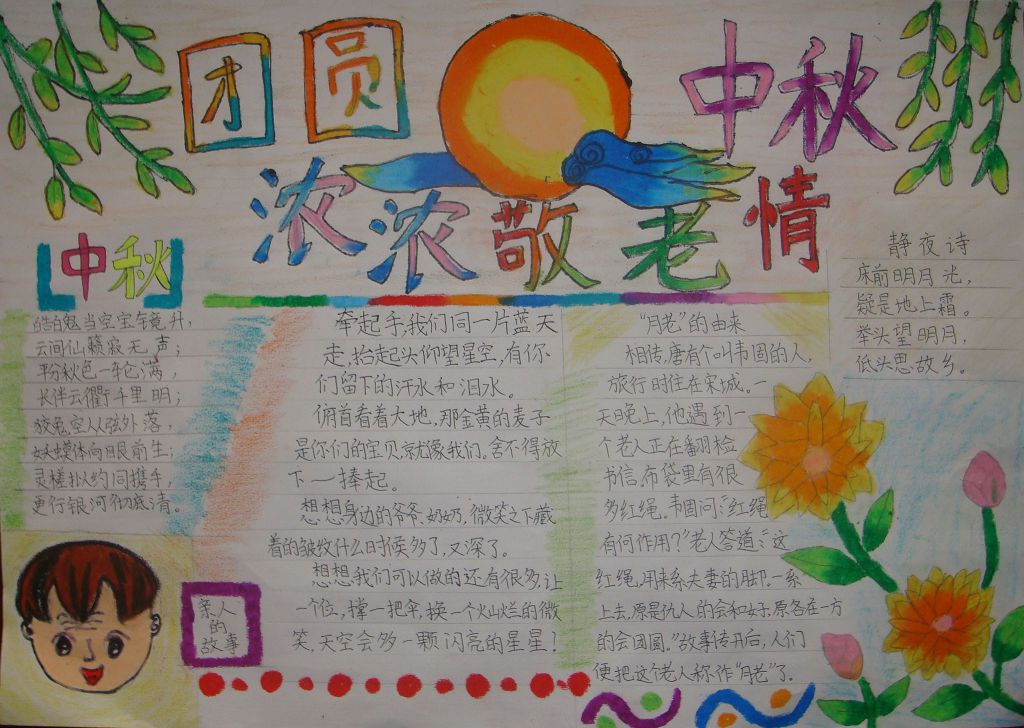 团圆
中秋
浓浓敬老情
中秋
皓魄当空宝镜升,
云间仙籁寂无声;
平分秋色一轮满,
长伴云衢千里明;
狡兔空从弦外落,
妖蟆休向眼前生;
灵槎拟约同携手,
更行银河彻底清。
亲人
的
故事
牵起手,我们同一片蓝天
走,抬起头仰望星空,有你
们留下的汗水和泪水。
俯首看着大地,那金黄的麦子
是你们的宝贝,就像我们。舍不得放
下一一捧起。
想想身边的爷爷.奶奶,微笑之下藏
着的皱纹什么时候多了,又深了。
想想我们可以做的还有很多,让
一个位,撑一把伞,换一个灿烂的微
笑,天空会多一颗闪亮的星星!
“月老”的由来
相传,唐有个叫韦固的人,
旅行时住在宋城。一
天晚上,他遇到一
个老人正在翻检
书信,布袋里有很
多红绳。韦固问:“红绳
有何作用?”老人答道:“这
红绳,用来系夫妻的脚.一系
上去,原是仇人的会和好,原各在一方
的会团圆。”故事传开后,人们
便把这个老人称作“月老”了.
静夜诗
床前明月光,
疑是地上霜。
举头望明月,
低头思故乡。